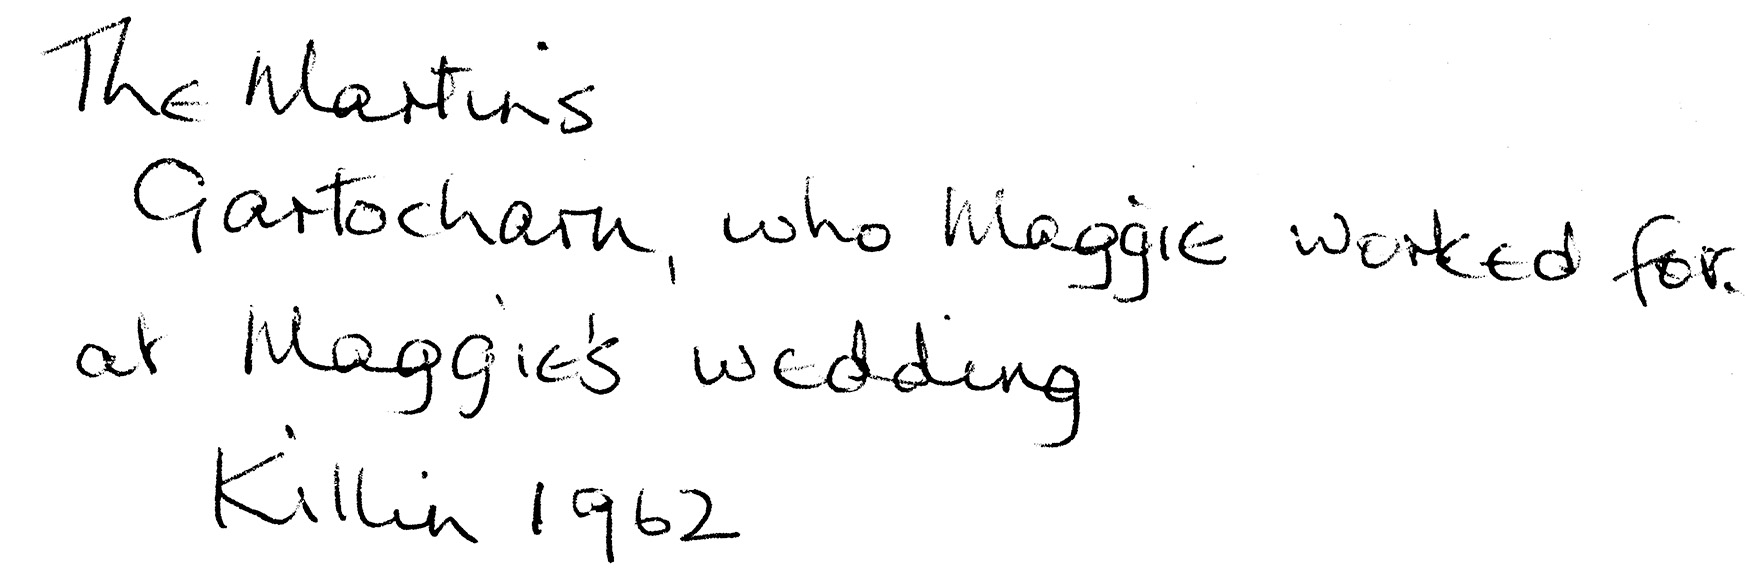 The Martins
Gartocharn, who Maggie worked for.
at Maggie's wedding
Killin 1962